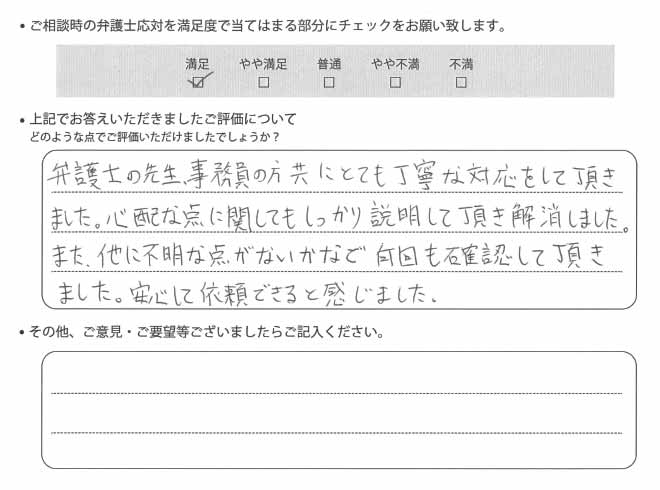 • ご相談時の弁護士応対を満足度で当てはまる部分にチェックをお願い致します。
満足 やや満足 普通 やや不満 不満
☑ □ □ □ □
• 上記でお答えいただきましたご評価について
どのような点でご評価いただけましたでしょうか？
弁護士の先生、事務員の方共にとても丁寧な対応をして頂き
ました。心配な点に関してもしっかり説明して頂き解消しました。
また、他に不明な点がないかなど何回も確認して頂き
ました。安心して依頼できると感じました。
• その他、ご意見・ご要望等ございましたらご記入ください。